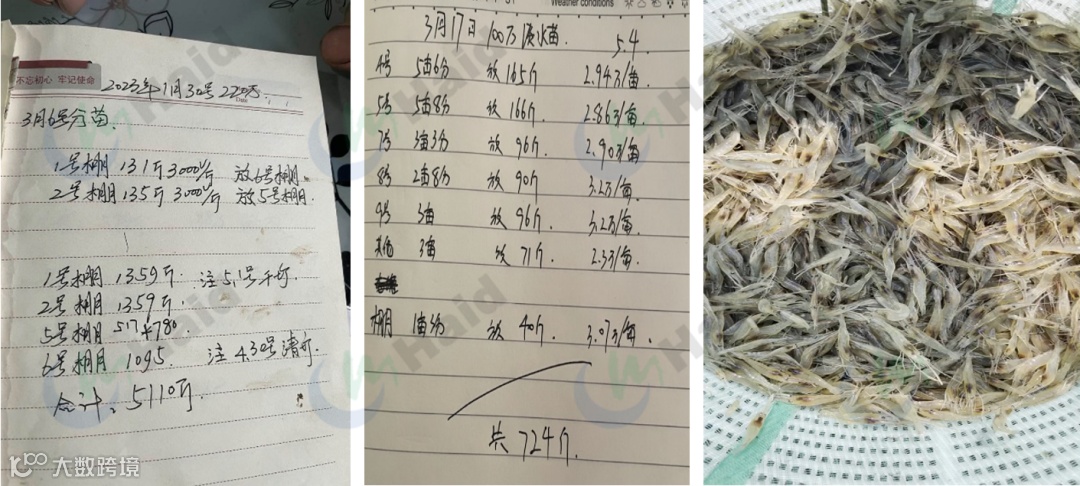 不忘初心 牢记使命
2023年11月30号 220万
Date
3月6号分苗.
1号棚 131斤 3000/斤 放6号棚.
2号棚 135斤 3000/斤 放5号棚.
1号棚 1359斤 注5.1号干灯.
2号棚 1359斤.
5号棚 517+780
6号棚 1095. 注4.30号清灯.
合计: 5110斤.
Weather conditions
3月17日 100万 淡水苗. 5.4
4号 5亩6分 放165斤 2.94万/亩
5号 5亩8分 放166斤 2.86万/亩
7号 3亩3分 放96斤 2.90万/亩
8号 2亩8分 放90斤 3.2万/亩
9号 3亩 放96斤 3.2万/亩
其他 3亩 放71斤 2.3万/亩
棚 1亩3分 放40斤 3.07万/亩.
共724斤.
Haid
Haid
大数跨境